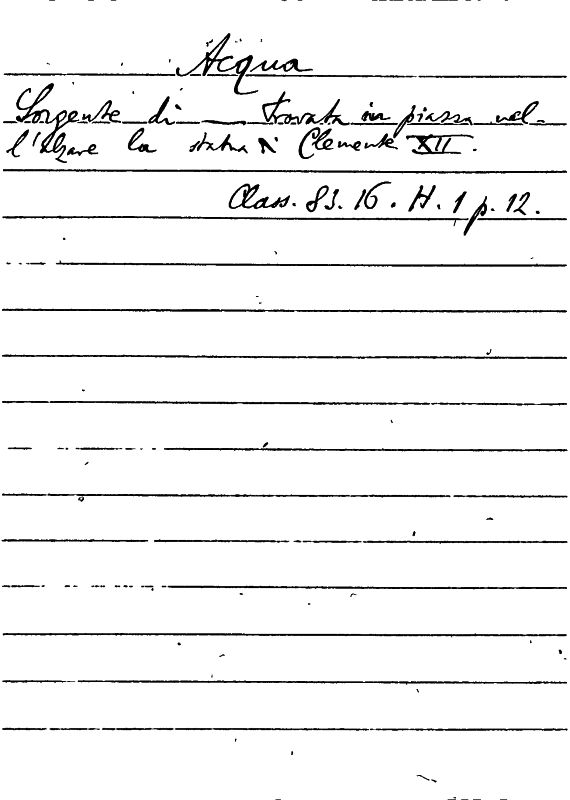 Acqua
Sorgente di — trovata in piazza nel-
l'alzare la statua Clemente XII.
Class. 83. 16. H. 1 p. 12.